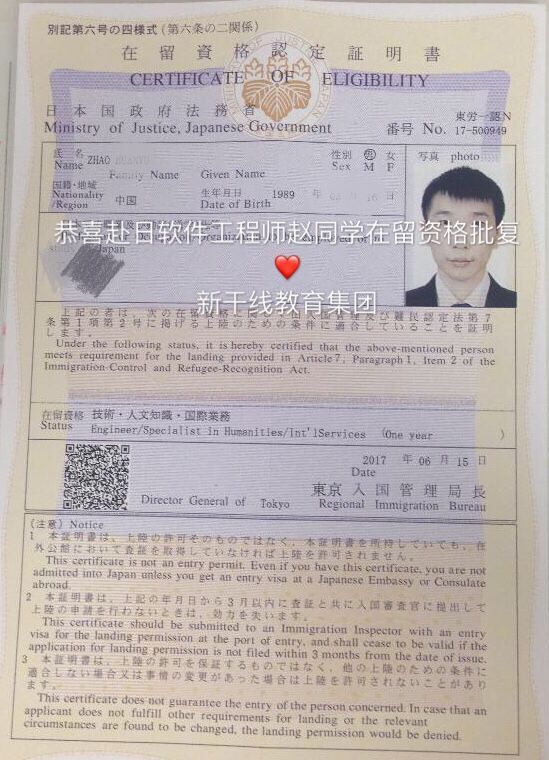 別記第六号の四様式(第六条の二関係)
在留資格認定証明書
CERTIFICATE OF ELIGIBILITY
日本国政府法務省
Ministry of Justice, Japanese Government
東労一認N
番号 No. 17-500949
氏名 ZHAO
Name Family Name Given Name
性別 男 女
Sex M F
写真 photo
国籍・地域
Nationality /Region 中国
生年月日 1989
Date of Birth
16
恭喜赴日软件工程师赵同学在留资格批复
Japan
❤
新干线教育集团
上記の者は、次の在留資格に
及び難民認定法第7
条第1項第2号に掲げる上陸のための条件に適合していることを証明
します。
Under the following status, it is hereby certified that the above-mentioned person
meets requirement for the landing provided in Article 7, Paragraph 1, Item 2 of the
Immigration-Control and Refugee-Recognition Act.
在留資格 技術・人文知識・国際業務
Status Engineer/Specialist in Humanities/Int'lServices (One year )
2017 年 06 月 15 日
Date
東京 入国管理局長
Director General of Tokyo Regional Immigration Bureau
(注意) Notice
1 本証明書は、上陸の許可そのものではなく、本証明書を所持していても、在
外公館において査証を取得していなければ上陸を許可されません。
This certificate is not an entry permit. Even if you have this certificate, you are not
admitted into Japan unless you get an entry visa at a Japanese Embassy or Consulate
abroad.
2 本証明書は、上記の年月日から3月以内に査証と共に入国審査官に提出して
上陸の申請を行わないときは、効力を失います。
This certificate should be submitted to an Immigration Inspector with an entry
visa for the landing permission at the port of entry, and shall cease to be valid if the
application for landing permission is not filed within 3 months from the date of issue.
3 本証明書は、上陸の許可を保証するものではなく、他の上陸のための条件に
適合しない場合又は事情の変更があった場合は上陸を許可されないことがあり
ます。
This certificate does not guarantee the entry of the person concerned. In case that an
applicant does not fulfill other requirements for landing or the relevant
circumstances are found to be changed, the landing permission would be denied.